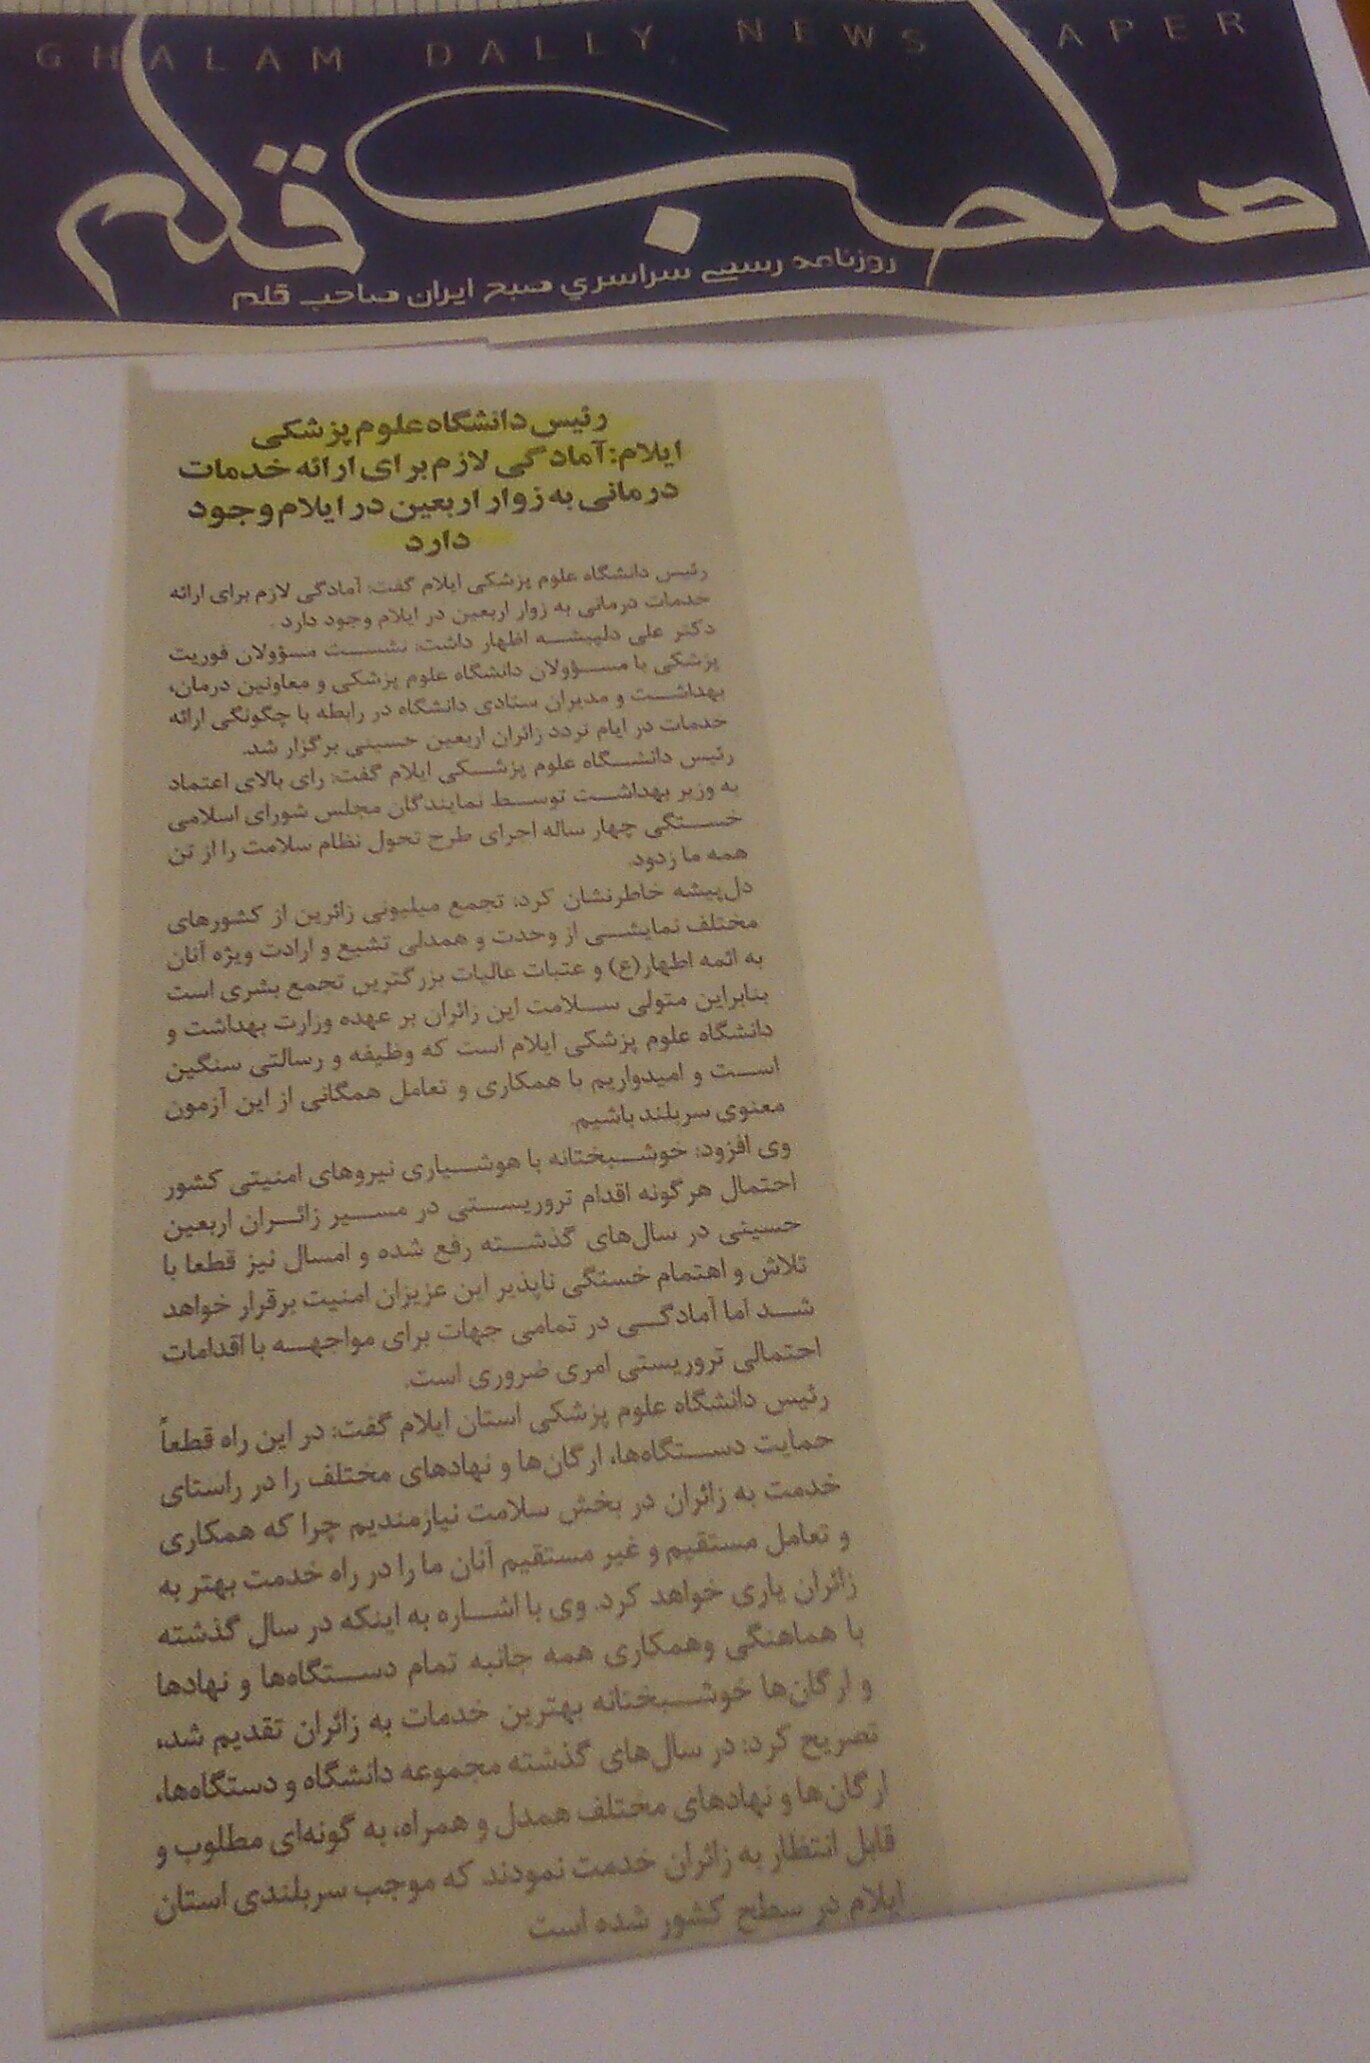 GHALAM DALLY NEWS PAPER
صاحب قلم
روزنامه رسمی سراسری صبح ایران صاحب قلم
رئیس دانشگاه علوم پزشکی
ایلام: آمادگی لازم برای ارائه خدمات
درمانی به زوار اربعین در ایلام وجود
دارد
رئیس دانشگاه علوم پزشکی ایلام گفت: آمادگی لازم برای ارائه
خدمات درمانی به زوار اربعین در ایلام وجود دارد .
دکتر علی دلپیشه اظهار داشت: نشست مسؤولان فوریت
پزشکی با مسؤولان دانشگاه علوم پزشکی و معاونین درمان،
بهداشت و مدیران ستادی دانشگاه در رابطه با چگونگی ارائه
خدمات در ایام تردد زائران اربعین حسینی برگزار شد.
رئیس دانشگاه علوم پزشکی ایلام گفت: رای بالای اعتماد
به وزیر بهداشت توسط نمایندگان مجلس شورای اسلامی
خستگی چهار ساله اجرای طرح تحول نظام سلامت را از تن
همه ما زدود.
دل‌پیشه خاطرنشان کرد: تجمع میلیونی زائرین از کشورهای
مختلف نمایشی از وحدت و همدلی تشیع و ارادت ویژه آنان
به ائمه اطهار(ع) و عتبات عالیات بزرگترین تجمع بشری است
بنابراین متولی سلامت این زائران بر عهده وزارت بهداشت و
دانشگاه علوم پزشکی ایلام است که وظیفه و رسالتی سنگین
است و امیدواریم با همکاری و تعامل همگانی از این آزمون
معنوی سربلند باشیم.
وی افزود: خوشبختانه با هوشیاری نیروهای امنیتی کشور
احتمال هرگونه اقدام تروریستی در مسیر زائران اربعین
حسینی در سال‌های گذشته رفع شده و امسال نیز قطعا با
تلاش و اهتمام خستگی ناپذیر این عزیزان امنیت برقرار خواهد
شد اما آمادگی در تمامی جهات برای مواجهه با اقدامات
احتمالی تروریستی امری ضروری است.
رئیس دانشگاه علوم پزشکی استان ایلام گفت: در این راه قطعاً
حمایت دستگاه‌ها، ارگان‌ها و نهادهای مختلف را در راستای
خدمت به زائران در بخش سلامت نیازمندیم چرا که همکاری
و تعامل مستقیم و غیر مستقیم آنان ما را در راه خدمت بهتر به
زائران یاری خواهد کرد. وی با اشاره به اینکه در سال گذشته
با هماهنگی وهمکاری همه جانبه تمام دستگاه‌ها و نهادها
و ارگان‌ها خوشبختانه بهترین خدمات به زائران تقدیم شد،
تصریح کرد: در سال‌های گذشته مجموعه دانشگاه و دستگاه‌ها،
ارگان‌ها و نهادهای مختلف همدل و همراه، به گونه‌ای مطلوب و
قابل انتظار به زائران خدمت نمودند که موجب سربلندی استان
ایلام در سطح کشور شده است